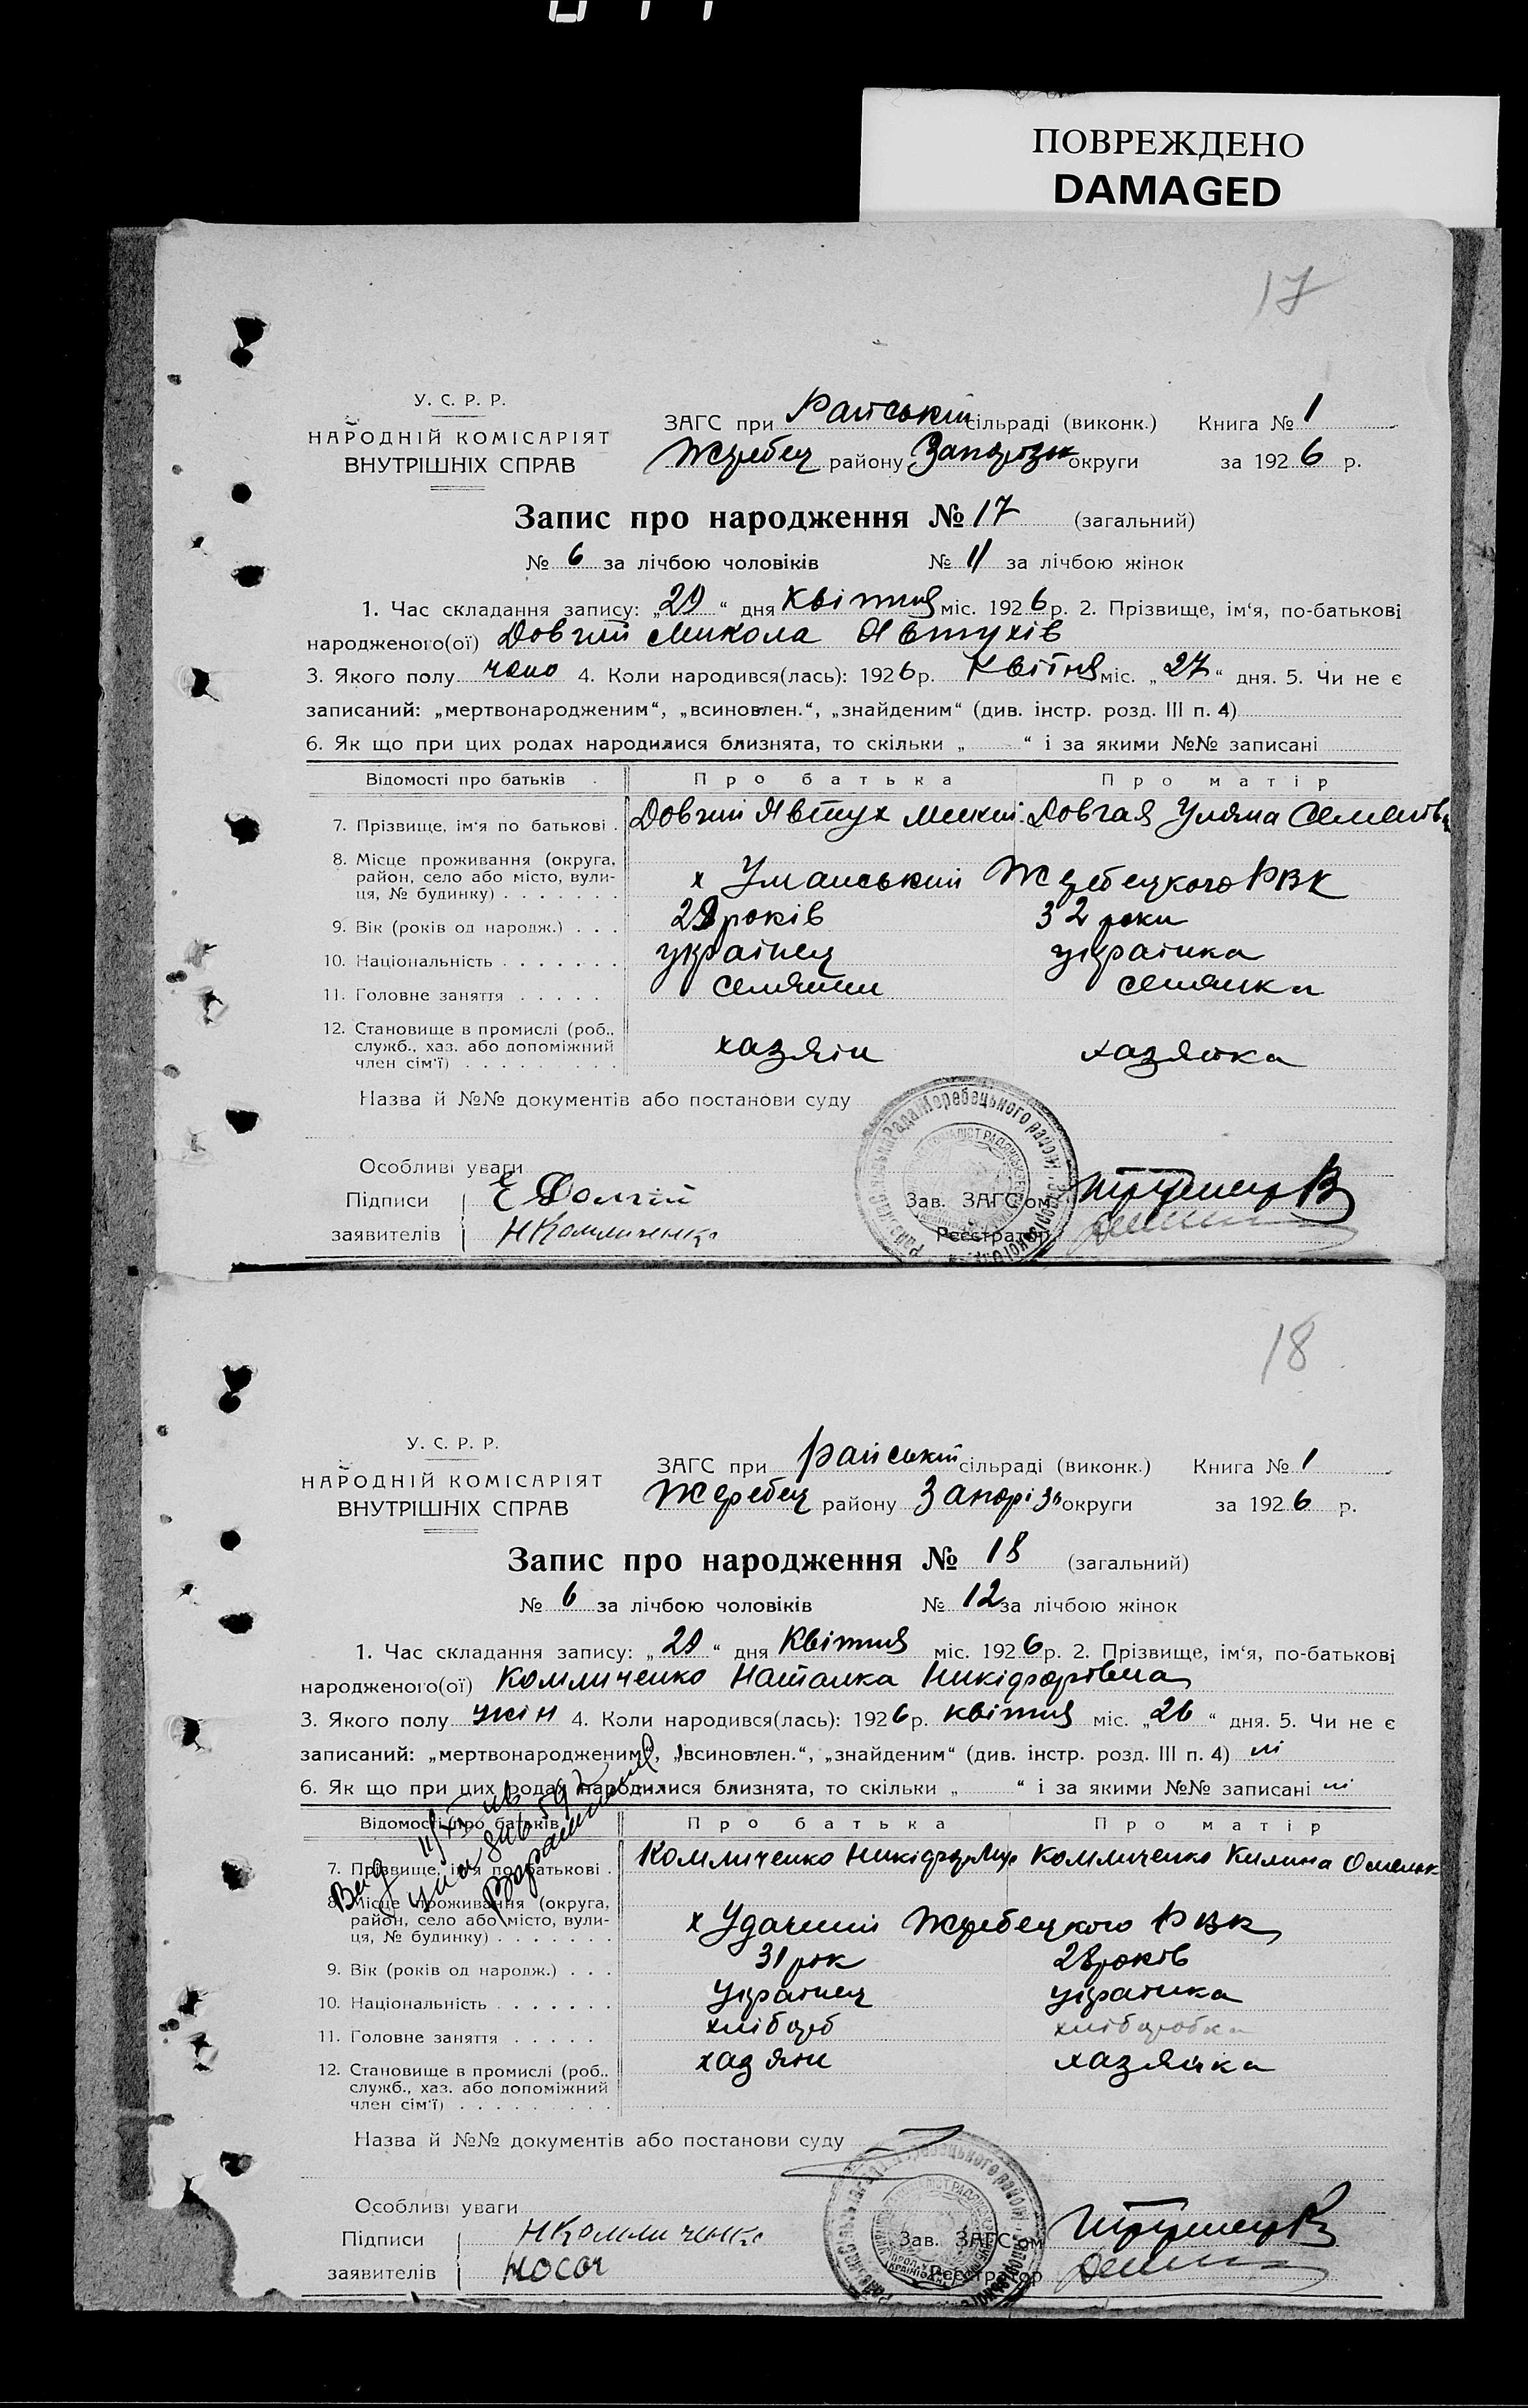 ПОВРЕЖДЕНО
DAMAGED
17
У. С. Р. Р.
НАРОДНІЙ КОМІСАРІЯТ
ВНУТРІШНІХ СПРАВ
ЗАГС при Райській сільраді (виконк.) Книга № 1
Жеребец району Запорізьк округи за 1926 р.
Запис про народження № 17 (загальний)
№ 6 за лічбою чоловіків № 11 за лічбою жінок
1. Час складання запису: „29“ дня Квітня міс. 1926 р. 2. Прізвище, ім‘я, по-батькові
народженого(ої) Довгий Микола Явтухів
3. Якого полу чоло 4. Коли народився(лась): 1926 р. Квітня міс. „27“ дня. 5. Чи не є
записаний: „мертвонародженим“, „всиновлен.“, „знайденим“ (див. інстр. розд. III п. 4)
6. Як що при цих родах народилися близнята, то скільки „ “ і за якими №№ записані
Відомості про батьків Про батька Про матір
7. Прізвище, ім‘я по батькові . Довгий Явтух Довгая Уляна
8. Місце проживання (округа,
район, село або місто, вули-
ця, № будинку) . . . . . . . х Уманський Жеребецкого РВК
9. Вік (років од народж.) . . . 28 років 32 роки
10. Національність . . . . . . . українец українка
11. Головне заняття . . . . . селянин селянка
12. Становище в промислі (роб.,
служб., хаз. або допоміжний
член сім‘ї) . . . . . . . . . хазяін хазяйка
Назва й №№ документів або постанови суду
Особливі уваги
Підписи Е Долгій
заявителів Н Комличенко
Зав. ЗАГС‘ом
Реєстратор
18
У. С. Р. Р.
НАРОДНІЙ КОМІСАРІЯТ
ВНУТРІШНІХ СПРАВ
ЗАГС при Райській сільраді (виконк.) Книга № 1
Жеребец району Запорізь округи за 1926 р.
Запис про народження № 18 (загальний)
№ 6 за лічбою чоловіків № 12 за лічбою жінок
1. Час складання запису: „29“ дня Квітня міс. 1926 р. 2. Прізвище, ім‘я, по-батькові
народженого(ої) Комличенко Наталка Никіфорівна
3. Якого полу жін 4. Коли народився(лась): 1926 р. квітня міс. „26“ дня. 5. Чи не є
записаний: „мертвонародженим“, „всиновлен.“, „знайденим“ (див. інстр. розд. III п. 4) ні
6. Як що при цих родах народилися близнята, то скільки „ “ і за якими №№ записані ні
Відомості про батьків Про батька Про матір
7. Прізвище, ім‘я по батькові . Комличенко Никіфор Комличенко Килина Омельк
8. Місце проживання (округа,
район, село або місто, вули-
ця, № будинку) . . . . . . . х Удачний Жеребецкого РВК
9. Вік (років од народж.) . . . 31 рік 28 років
10. Національність . . . . . . . Українец українка
11. Головне заняття . . . . . хлібороб хліборобка
12. Становище в промислі (роб.,
служб., хаз. або допоміжний
член сім‘ї) . . . . . . . . . хазяін хазяйка
Назва й №№ документів або постанови суду
Особливі уваги
Підписи Н Комличенко
заявителів Носач
Зав. ЗАГС‘ом
Реєстратор